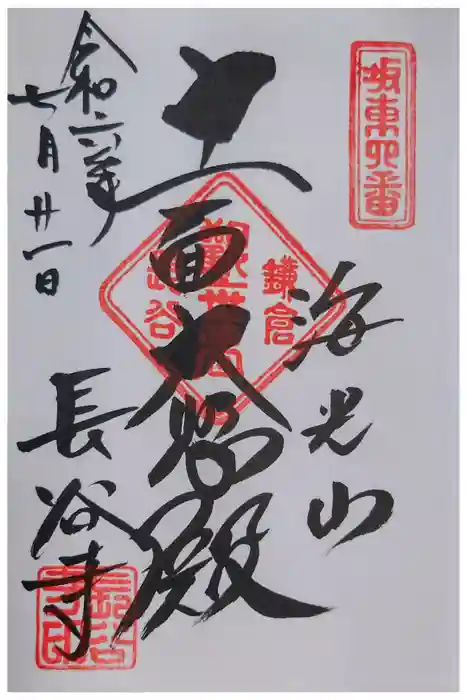 坂東四番
海光山
十一面大悲殿
令和六年
七月廿一日
長谷寺
鎌倉
観世音
長谷
長谷寺印